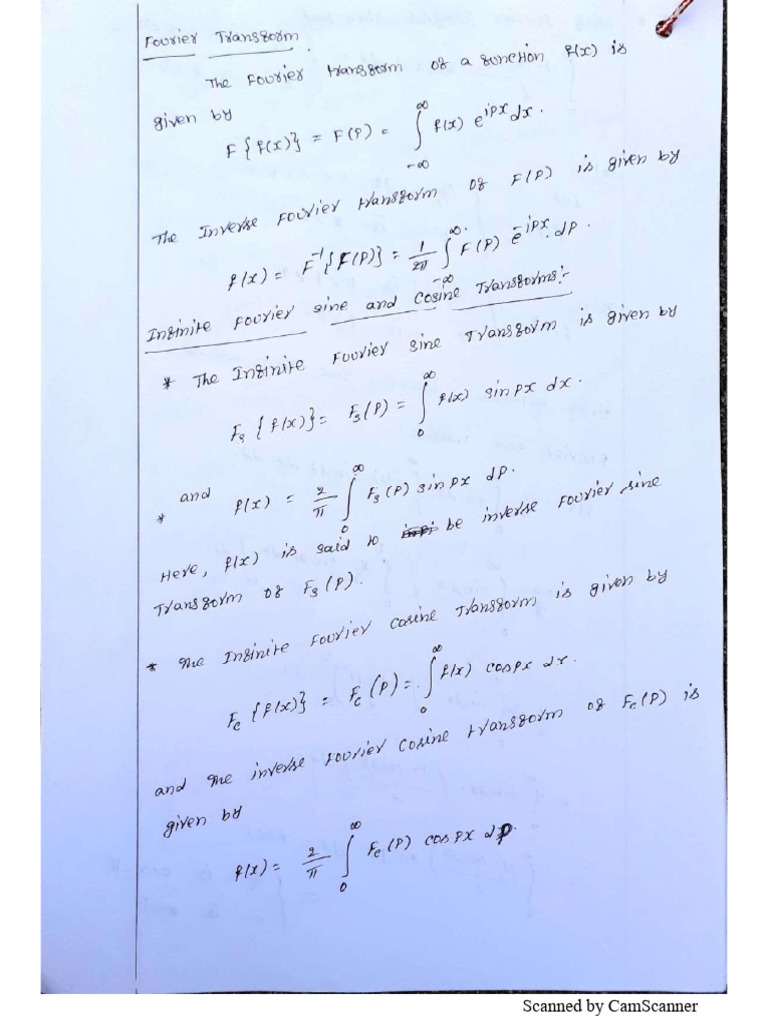 Fourier Transform.
The Fourier transform of a function f(x) is
given by
F{f(x)} = F(P) = ∫_{-∞}^{∞} f(x) e^{iPx} dx.
The Inverse Fourier transform of F(P) is given by
f(x) = F^{-1}{F(P)} = 1/2π ∫_{-∞}^{∞} F(P) e^{-iPx} dP.
Infinite Fourier sine and Cosine Transforms:-
* The Infinite Fourier sine Transform is given by
F_s{f(x)} = F_s(P) = ∫_0^∞ f(x) sin Px dx.
* and f(x) = 2/π ∫_0^∞ F_s(P) sin Px dP.
Here, f(x) is said to be inverse Fourier sine
Transform of F_s(P).
* The Infinite Fourier cosine Transform is given by
F_c{f(x)} = F_c(P) = ∫_0^∞ f(x) cos Px dx.
and the inverse Fourier Cosine transform of F_c(P) is
given by
f(x) = 2/π ∫_0^∞ F_c(P) cos Px dP.
Scanned by CamScanner